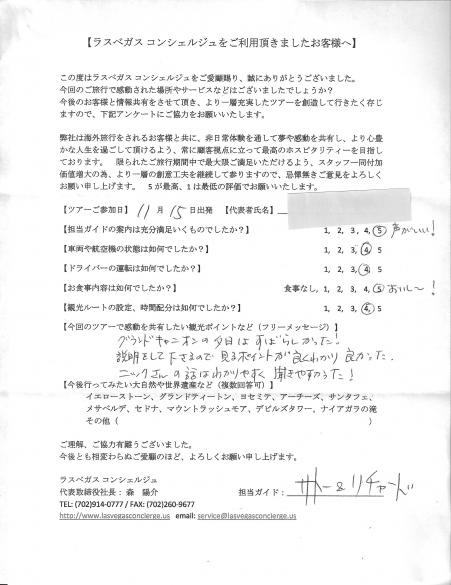 【ラスベガス コンシェルジュをご利用頂きましたお客様へ】
この度はラスベガス コンシェルジュをご愛顧賜り、誠にありがとうございました。
今回のご旅行で感動された場所やサービスなどはございましたでしょうか?
今後のお客様と情報共有をさせて頂き、より一層充実したツアーを創造して行きたく存じ
ますので、下記アンケートにご協力をお願いいたします。
弊社は海外旅行をされるお客様と共に、非日常体験を通して夢や感動を共有し、より心豊
かな人生を過ごして頂けるよう、常に顧客視点に立って最高のホスピタリティーを目指し
ております。 限られたご旅行期間中で最大限ご満足いただけるよう、スタッフ一同付加
価値増大の為、より一層の創意工夫を継続して参りますので、忌憚無きご意見をよろしく
お願い申し上げます。 5が最高、1は最低の評価でお願いいたします。
【ツアーご参加日】 11月 15日出発 【代表者氏名】
【担当ガイドの案内は充分満足いくものでしたか?】 1, 2, 3, 4, 5 声がいい!
【車両や航空機の状態は如何でしたか?】 1, 2, 3, 4, 5
【ドライバーの運転は如何でしたか?】 1, 2, 3, 4, 5
【お食事内容は如何でしたか?】 食事なし, 1, 2, 3, 4, 5 おいし〜!
【観光ルートの設定、時間配分は如何でしたか?】 1, 2, 3, 4, 5
【今回のツアーで感動を共有したい観光ポイントなど(フリーメッセージ)】
グランドキャニオンの夕日はすばらしかった!
説明をして下さるので見るポイントが良くわかり良かった.
ニックさんの話はわかりやすく 聞きやすかった!
【今後行ってみたい大自然や世界遺産など(複数回答可)】
イエローストーン、グランドティートン、ヨセミテ、アーチーズ、サンタフェ、
メサベルデ、セドナ、マウントラッシュモア、デビルズタワー、ナイアガラの滝
その他( )
ご理解、ご協力有難うございました。
今後とも相変わらぬご愛顧のほど、よろしくお願い申し上げます。
ラスベガス コンシェルジュ
代表取締役社長: 森 陽介 担当ガイド: サトー&リチャード
TEL: (702)914-0777 / FAX: (702)260-9677
http://www.lasvegasconcierge.us email: service@lasvegasconcierge.us